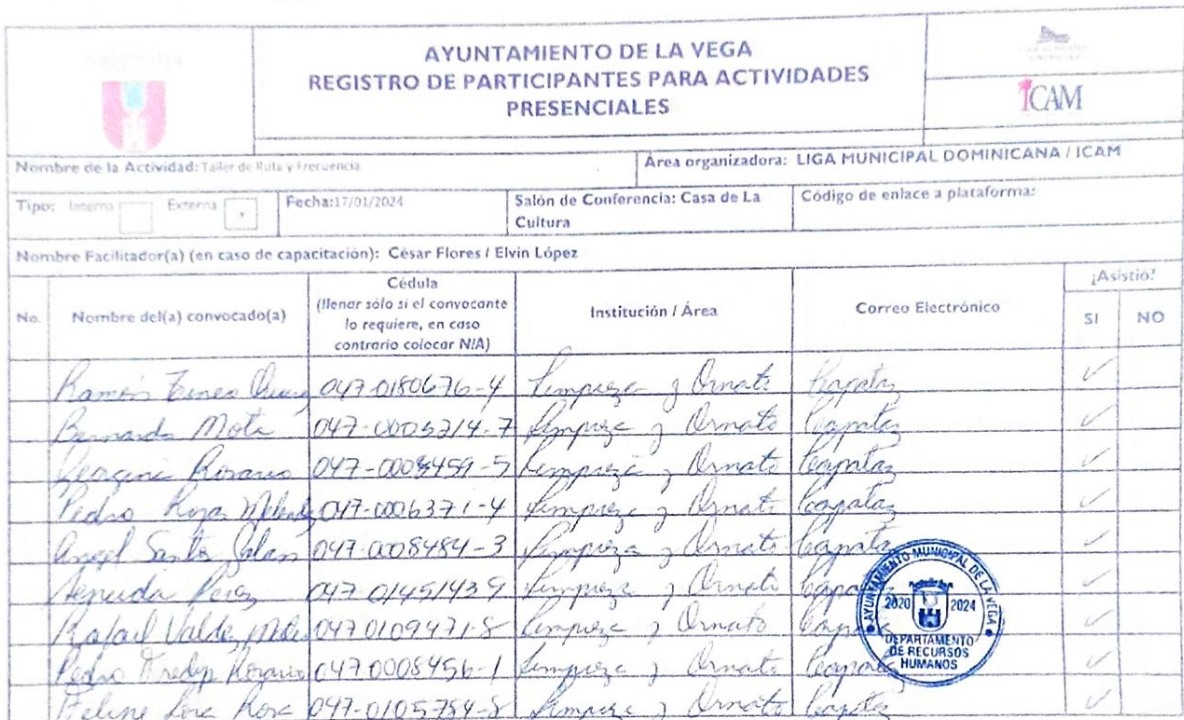 AYUNTAMIENTO DE LA VEGA
REGISTRO DE PARTICIPANTES PARA ACTIVIDADES
PRESENCIALES
ICAM
Nombre de la Actividad: Taller de Ruta y Frecuencia
Área organizadora: LIGA MUNICIPAL DOMINICANA / ICAM
Tipo: Interno Externa x
Fecha:17/01/2024
Salón de Conferencia: Casa de La
Cultura
Código de enlace a plataforma:
Nombre Facilitador(a) (en caso de capacitación): César Flores / Elvin López
No. Nombre del(a) convocado(a)
Cédula
(llenar sólo si el convocante
lo requiere, en caso
contrario colocar N/A)
Institución / Área
Correo Electrónico
¿Asistió?
SI NO
Ramón 047-0180676-4 Limpieza y Ornato Capataz ✓
Bernardo Mota 047-0005214-7 Limpieza y Ornato Capataz ✓
Rosario 047-0008459-5 Limpieza y Ornato Capataz ✓
Pedro 047-0006371-4 Limpieza y Ornato Capataz ✓
Angel Santos 047-0008484-3 Limpieza y Ornato Capataz ✓
Perez 047-0145143-9 Limpieza y Ornato ✓
Rafael Valdez 047 0109471-8 Limpieza y Ornato ✓
Pedro Rosario 047 0008456-1 Limpieza y Ornato Capataz ✓
Felipe 047-0105784-8 Limpieza y Ornato Capataz ✓
AYUNTAMIENTO MUNICIPAL DE LA VEGA
2020 2024
DEPARTAMENTO
DE RECURSOS
HUMANOS